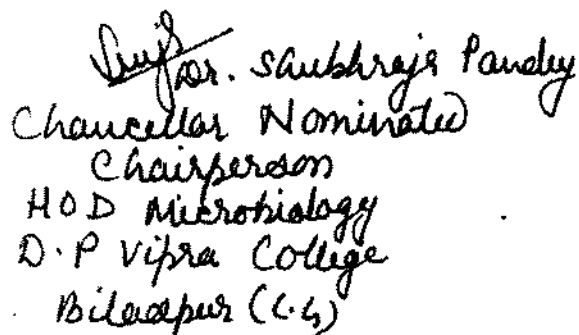 Dr. Saubhragya Pandey
Chancellor Nominated
Chairperson
HOD Microbiology
D.P Vipra College
Bilaspur (C.G)